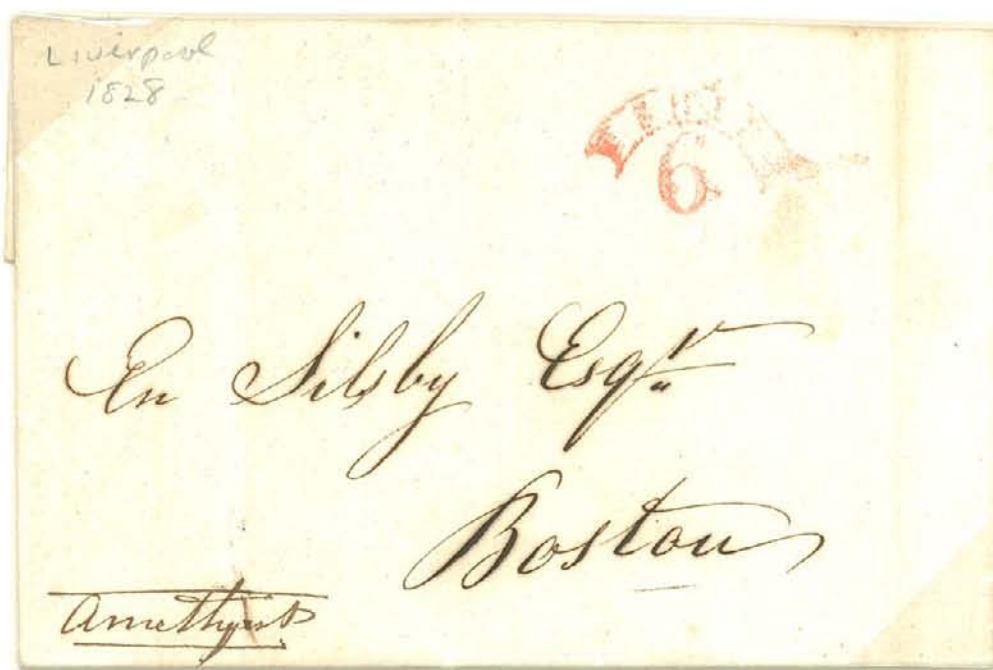 Liverpool
1828
6
En Silsby Esqr.
Boston
Amethyst